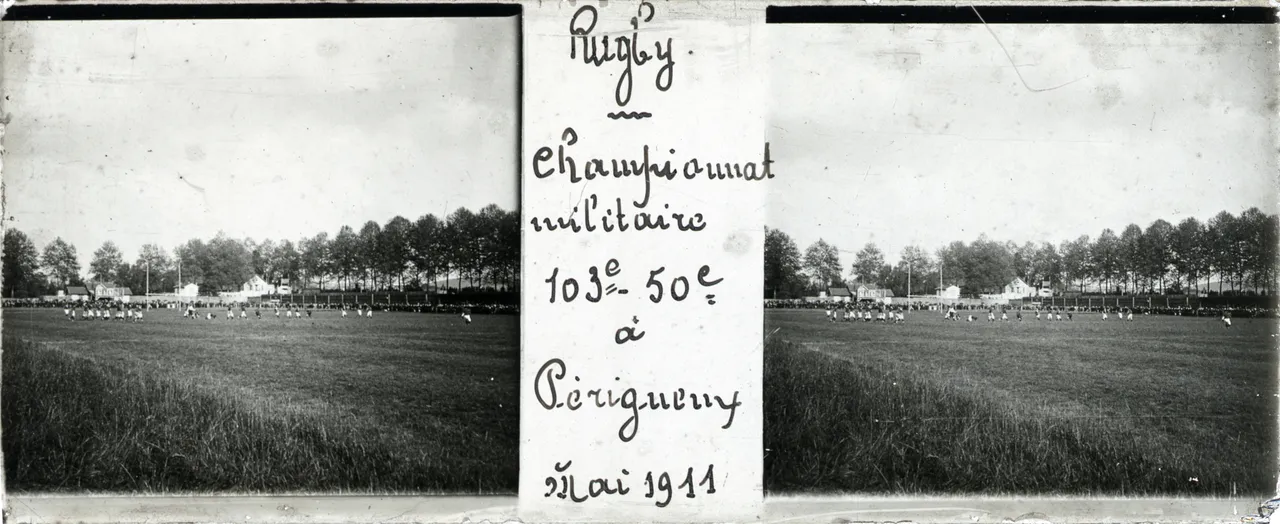 Rugby.
Championnat
militaire
103e - 50e
à
Périgueux
Mai 1911